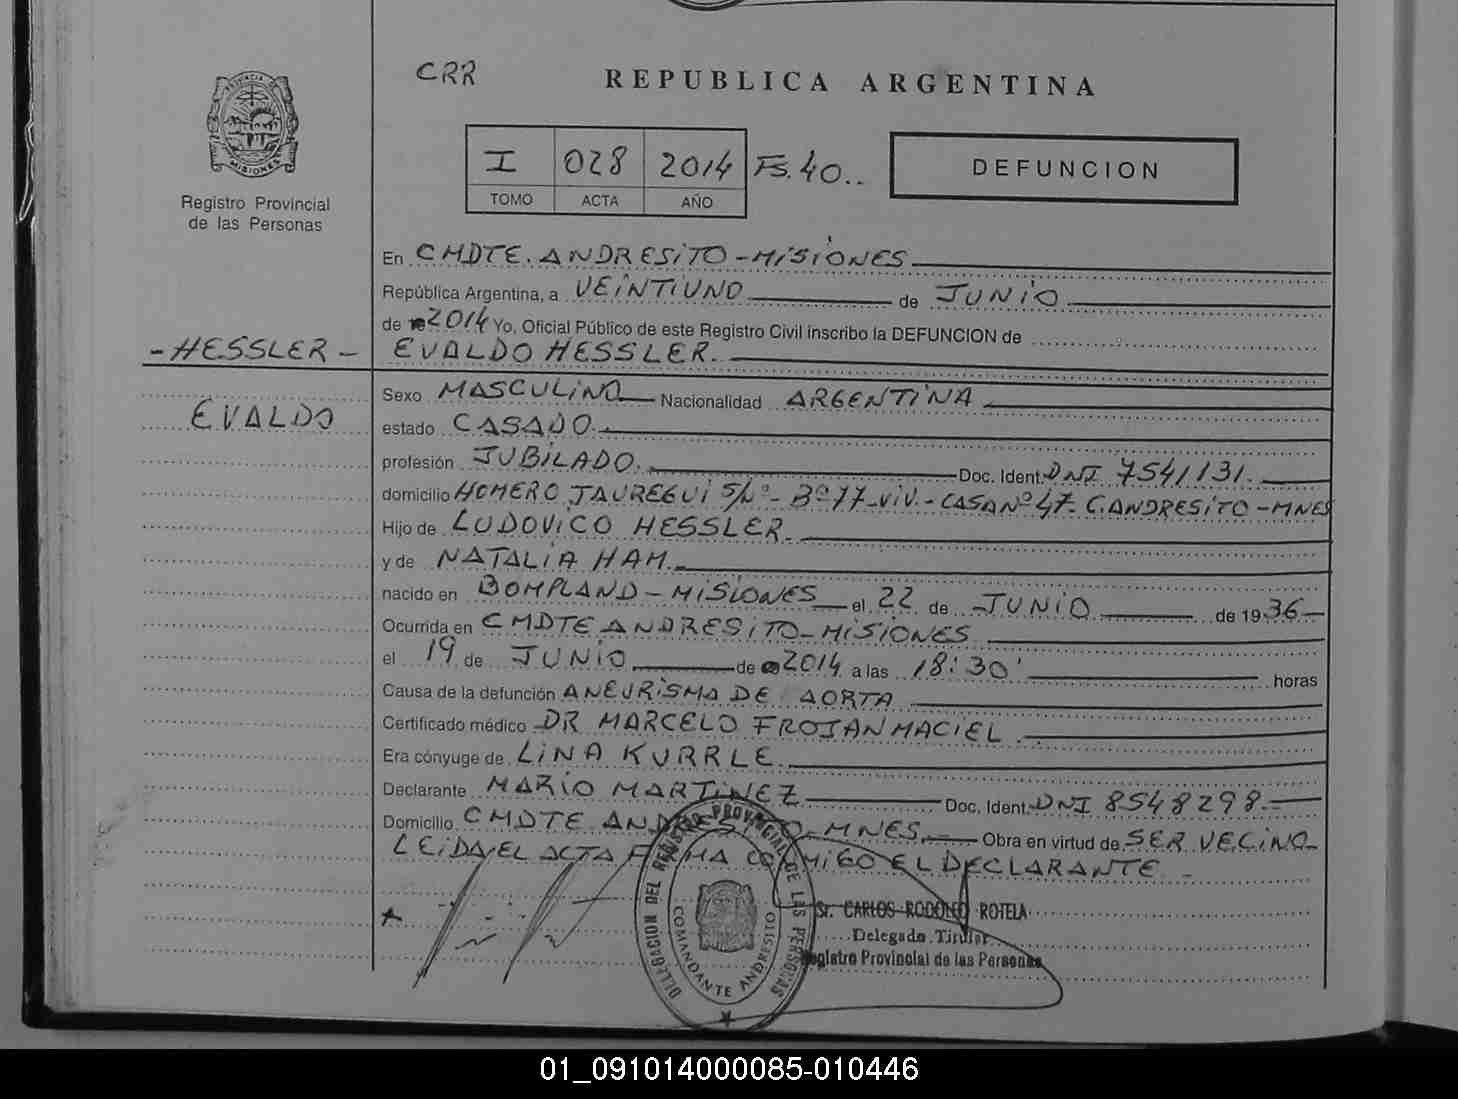 PROVINCIA DE
MISIONES
Registro Provincial
de las Personas
CRR
REPUBLICA ARGENTINA
I 028 2014 Fs. 40..
TOMO ACTA AÑO
DEFUNCION
En CMDTE. ANDRESITO - MISIONES
República Argentina, a VEINTIUNO de JUNIO
de 2014 Yo, Oficial Público de este Registro Civil inscribo la DEFUNCION de
- HESSLER - EVALDO HESSLER.
Sexo MASCULINO Nacionalidad ARGENTINA
EVALDO
estado CASADO.
profesión JUBILADO. Doc. Ident. DNI 7541131.
domicilio HOMERO JAUREGUI S/Nº - Bº 77 - VIV. - CASA Nº 47 - C. ANDRESITO - MNES
Hijo de LUDOVICO HESSLER.
y de NATALIA HAM.
nacido en BOMPLAND - MISIONES el 22 de JUNIO de 1936
Ocurrida en CMDTE ANDRESITO - MISIONES
el 19 de JUNIO de 2014 a las 18:30' horas
Causa de la defunción ANEURISMA DE AORTA
Certificado médico DR MARCELO FROJAN MACIEL
Era cónyuge de LINA KURRLE.
Declarante MARIO MARTINEZ Doc. Ident. DNI 8548298.
Domicilio CMDTE ANDRESITO - MNES. Obra en virtud de SER VECINO
LEIDA EL ACTA FIRMA CONMIGO EL DECLARANTE -
DELEGACION DEL REGISTRO PROVINCIAL DE LAS PERSONAS
COMANDANTE ANDRESITO
Sr. CARLOS RODOLFO ROTELA
Delegado Titular
Registro Provincial de las Personas
01_091014000085-010446